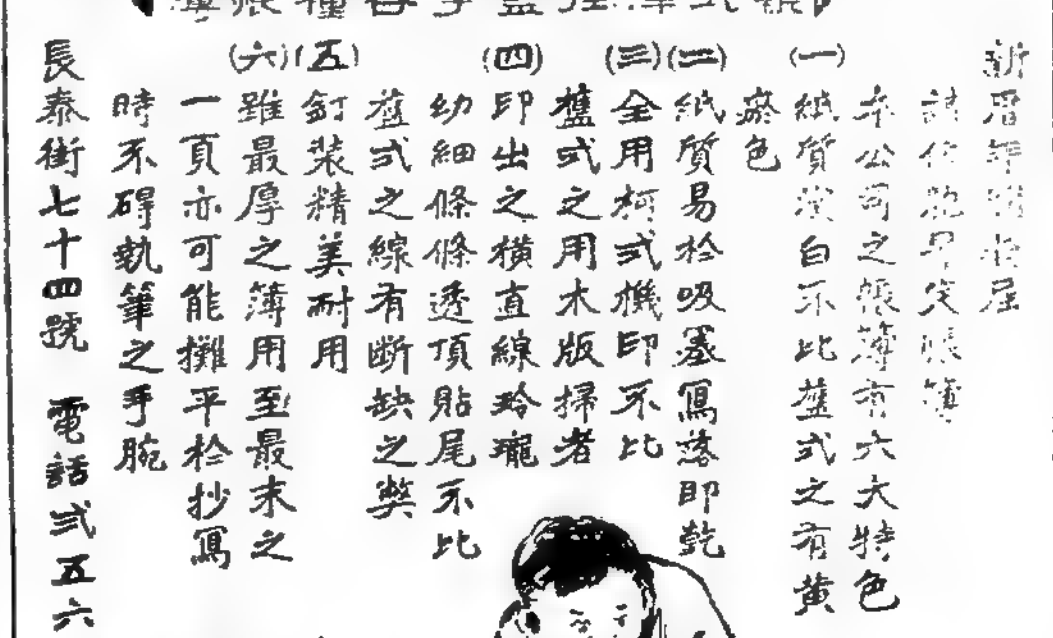 新曆年 將屆
請 早 帳簿
本公司之帳簿有六大特色
(一)紙質潔白不比舊式之有黃
瘀色
(二)紙質易於吸墨寫落即乾
(三)全用柯式機印不比
舊式之用木版掃者
(四)印出之橫直線玲瓏
幼細條條透頂貼尾不比
舊式之線有断缺之弊
(五)釘裝精美耐用
(六)雖最厚之簿用至最末之
一頁亦可能攤平於抄寫
時不碍執筆之手腕
長泰街七十四號 電話弍五六